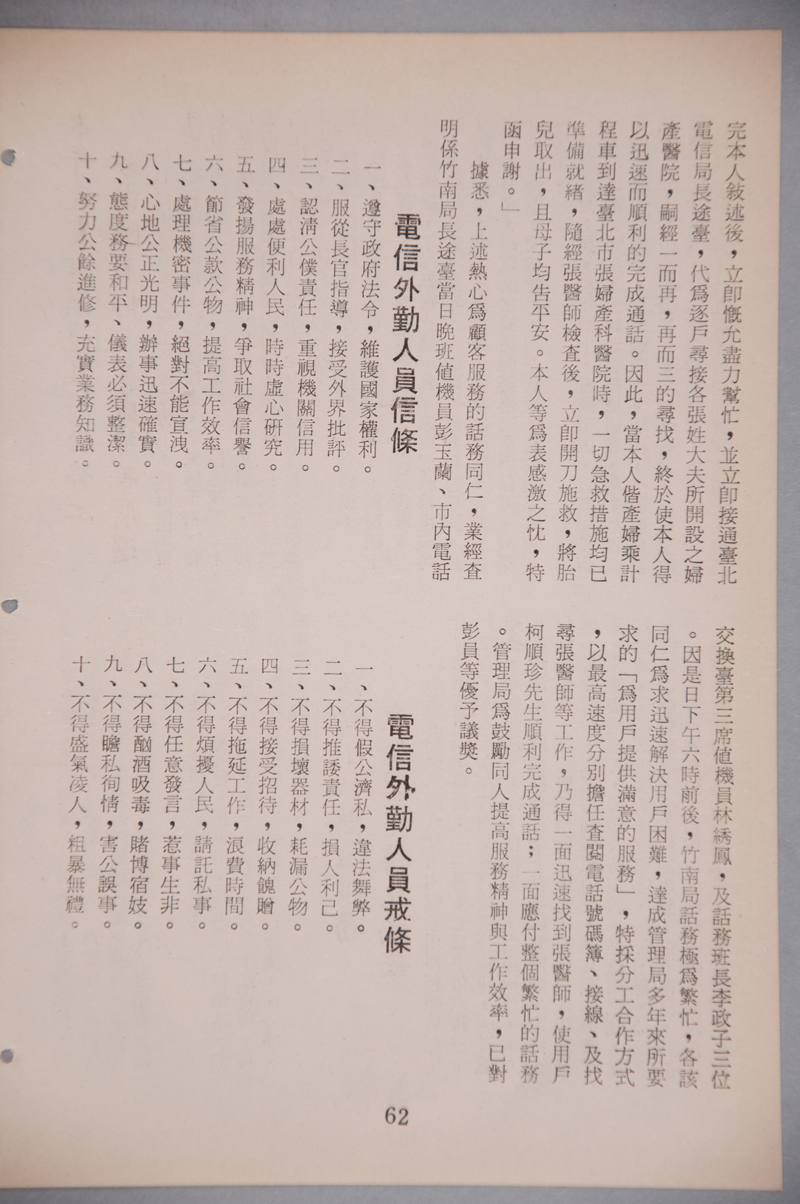 完本人敍述後，立卽慨允盡力幫忙，並立卽接通臺北
電信局長途臺，代爲逐戶尋接各張姓大夫所開設之婦
產醫院，嗣經一而再，再而三的尋找，終於使本人得
以迅速而順利的完成通話。因此，當本人偕產婦乘計
程車到達臺北市張婦產科醫院時，一切急救措施均已
準備就緒，隨經張醫師檢查後，立卽開刀施救，將胎
兒取出，且母子均吿平安。本人等爲表感激之忱，特
函申謝。」
據悉，上述熱心爲顧客服務的話務同仁，業經查
明係竹南局長途臺當日晚班値機員彭玉蘭、市內電話
交換臺第三席値機員林綉鳳，及話務班長李政子三位
。因是日下午六時前後，竹南局話務極爲繁忙，各該
同仁爲求迅速解決用戶困難，達成管理局多年來所要
求的「爲用戶提供滿意的服務」，特採分工合作方式
，以最高速度分別擔任查閱電話號碼簿、接線、及找
尋張醫師等工作，乃得一面迅速找到張醫師，使用戶
柯順珍先生順利完成通話；一面應付整個繁忙的話務
。管理局爲鼓勵同人提高服務精神與工作效率，已對
彭員等優予議獎。
電信外勤人員信條
一、遵守政府法令，維護國家權利。
二、服從長官指導，接受外界批評。
三、認淸公僕責任，重視機關信用。
四、處處便利人民，時時虛心研究。
五、發揚服務精神，爭取社會信譽。
六、節省公款公物，提高工作效率。
七、處理機密事件，絕對不能宣洩。
八、心地公正光明，辦事迅速確實。
九、態度務要和平、儀表必須整潔。
十、努力公餘進修，充實業務知識。
電信外勤人員戒條
一、不得假公濟私，違法舞弊。
二、不得推諉責任，損人利己。
三、不得損壞器材，耗漏公物。
四、不得接受招待，收納餽贈。
五、不得拖延工作，浪費時間。
六、不得煩擾人民，請託私事。
七、不得任意發言，惹事生非。
八、不得酗酒吸毒，賭博宿妓。
九、不得瞻私徇情，害公誤事。
十、不得盛氣凌人，粗暴無禮。
62